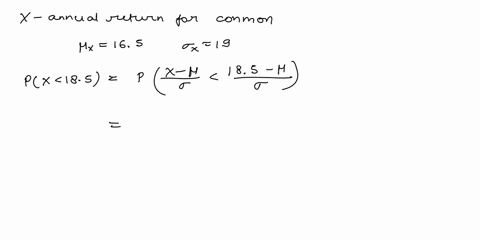 X - annual return for common
μₓ = 16.5 σₓ = 19
P(X < 18.5) = P (X-μ/σ < 18.5-μ/σ)
=